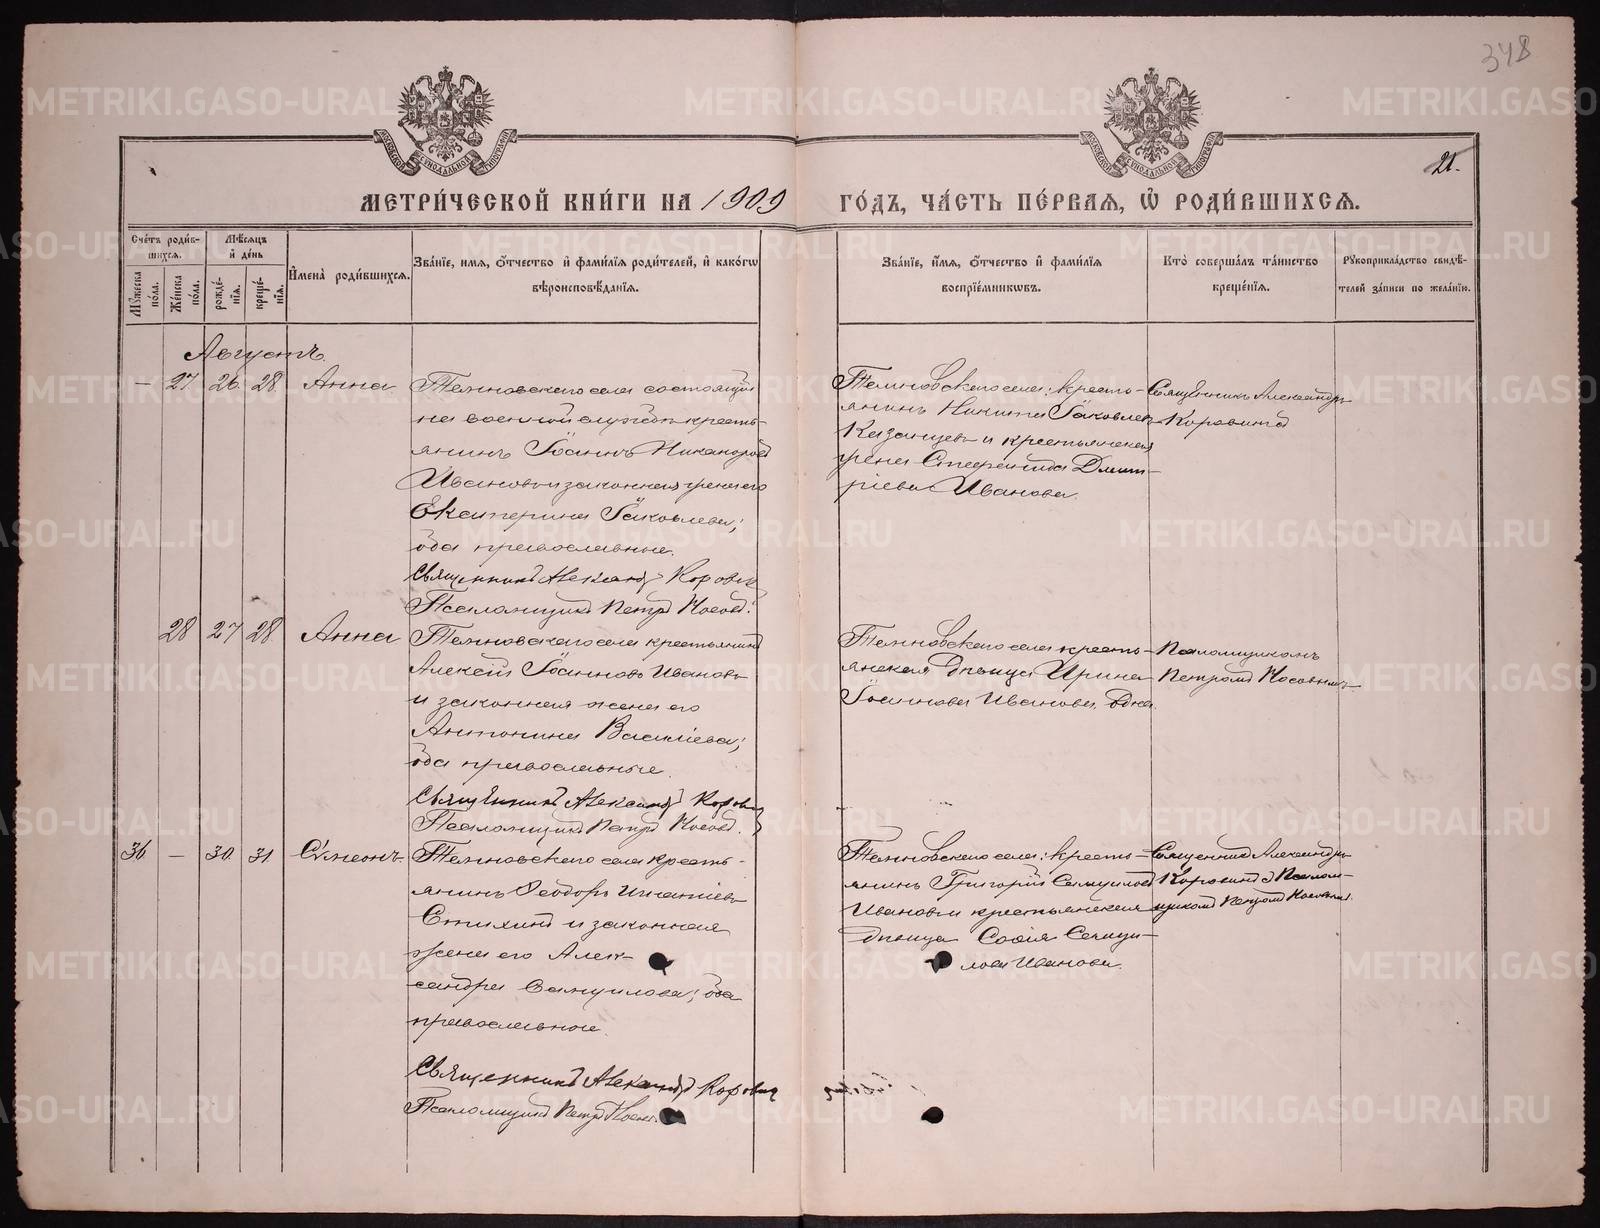 348
21.
МЕТРИ́ЧЕСКОЙ КНИ́ГИ НА 1909 ГО́ДЪ, ЧА́СТЬ ПЕ́РВАЯ, Ѡ҆ РОДИ́ВШИХСЯ.
Сче́тъ роди́в-
шихся.
Мꙋ́жеска по́ла.
Же́нска по́ла.
Мѣ́сяцъ и҆ де́нь
рожде́-
нїя.
креще́-
нїя.
И҆мена̀ роди́вшихся.
Зва́нїе, и҆́мя, ѻ҆́тчество и҆ фами́лїя роди́телей, и҆ како́гѡ
вѣроисповѣ́данїя.
Зва́нїе, и҆́мя, ѻ҆́тчество и҆ фами́лїя
воспрїе́мникѡвъ.
Кто̀ соверша́лъ та́инство
креще́нїя.
Рꙋкоприкла́дство свидѣ́-
телей за́писи по жела́нїю.
Августъ.
— 27 26. 28. Анна
Темновскаго села состоящій
на военной службѣ кресть-
янинъ Іоаннъ Никаноровъ
Ивановъ и законная жена его
Екатерина Іаковлева;
оба православные.
Священникъ Александръ Коровин
Псаломщикъ Петръ Носовъ.
Темновскаго села: кресть-
янинъ Никита Іаковлевъ
Казанцевъ и крестьянская
жена Стефанида Дмит-
ріева Иванова.
Священникъ Александръ
Коровинъ
28 27 28. Анна
Темновскаго села крестьянинъ
Алексій Іоанновъ Ивановъ
и законная жена его
Антонина Васильева;
оба православные.
Священникъ Александръ Коровин
Псаломщикъ Петръ Носовъ.
Темновскаго села кресть-
янская дѣвица Ирина
Іоаннова Иванова. Одна.
Псаломщикомъ
Петромъ Носовымъ
36 — 30. 31. Сѵмеонъ.
Темновскаго села кресть-
янинъ Ѳеодоръ Игнатіевъ
Стихинъ и законная
жена его Алек-
сандра Самуилова; оба
православные.
Священникъ Александръ Коровин
Псаломщикъ Петръ Носовъ.
Темновскаго села: кресть-
янинъ Григорій Самуиловъ
Ивановъ и крестьянская
дѣвица Софія Самуи-
лова Иванова.
Священникъ Александръ
Коровинъ с Псалом-
щикомъ Петромъ Носовымъ.